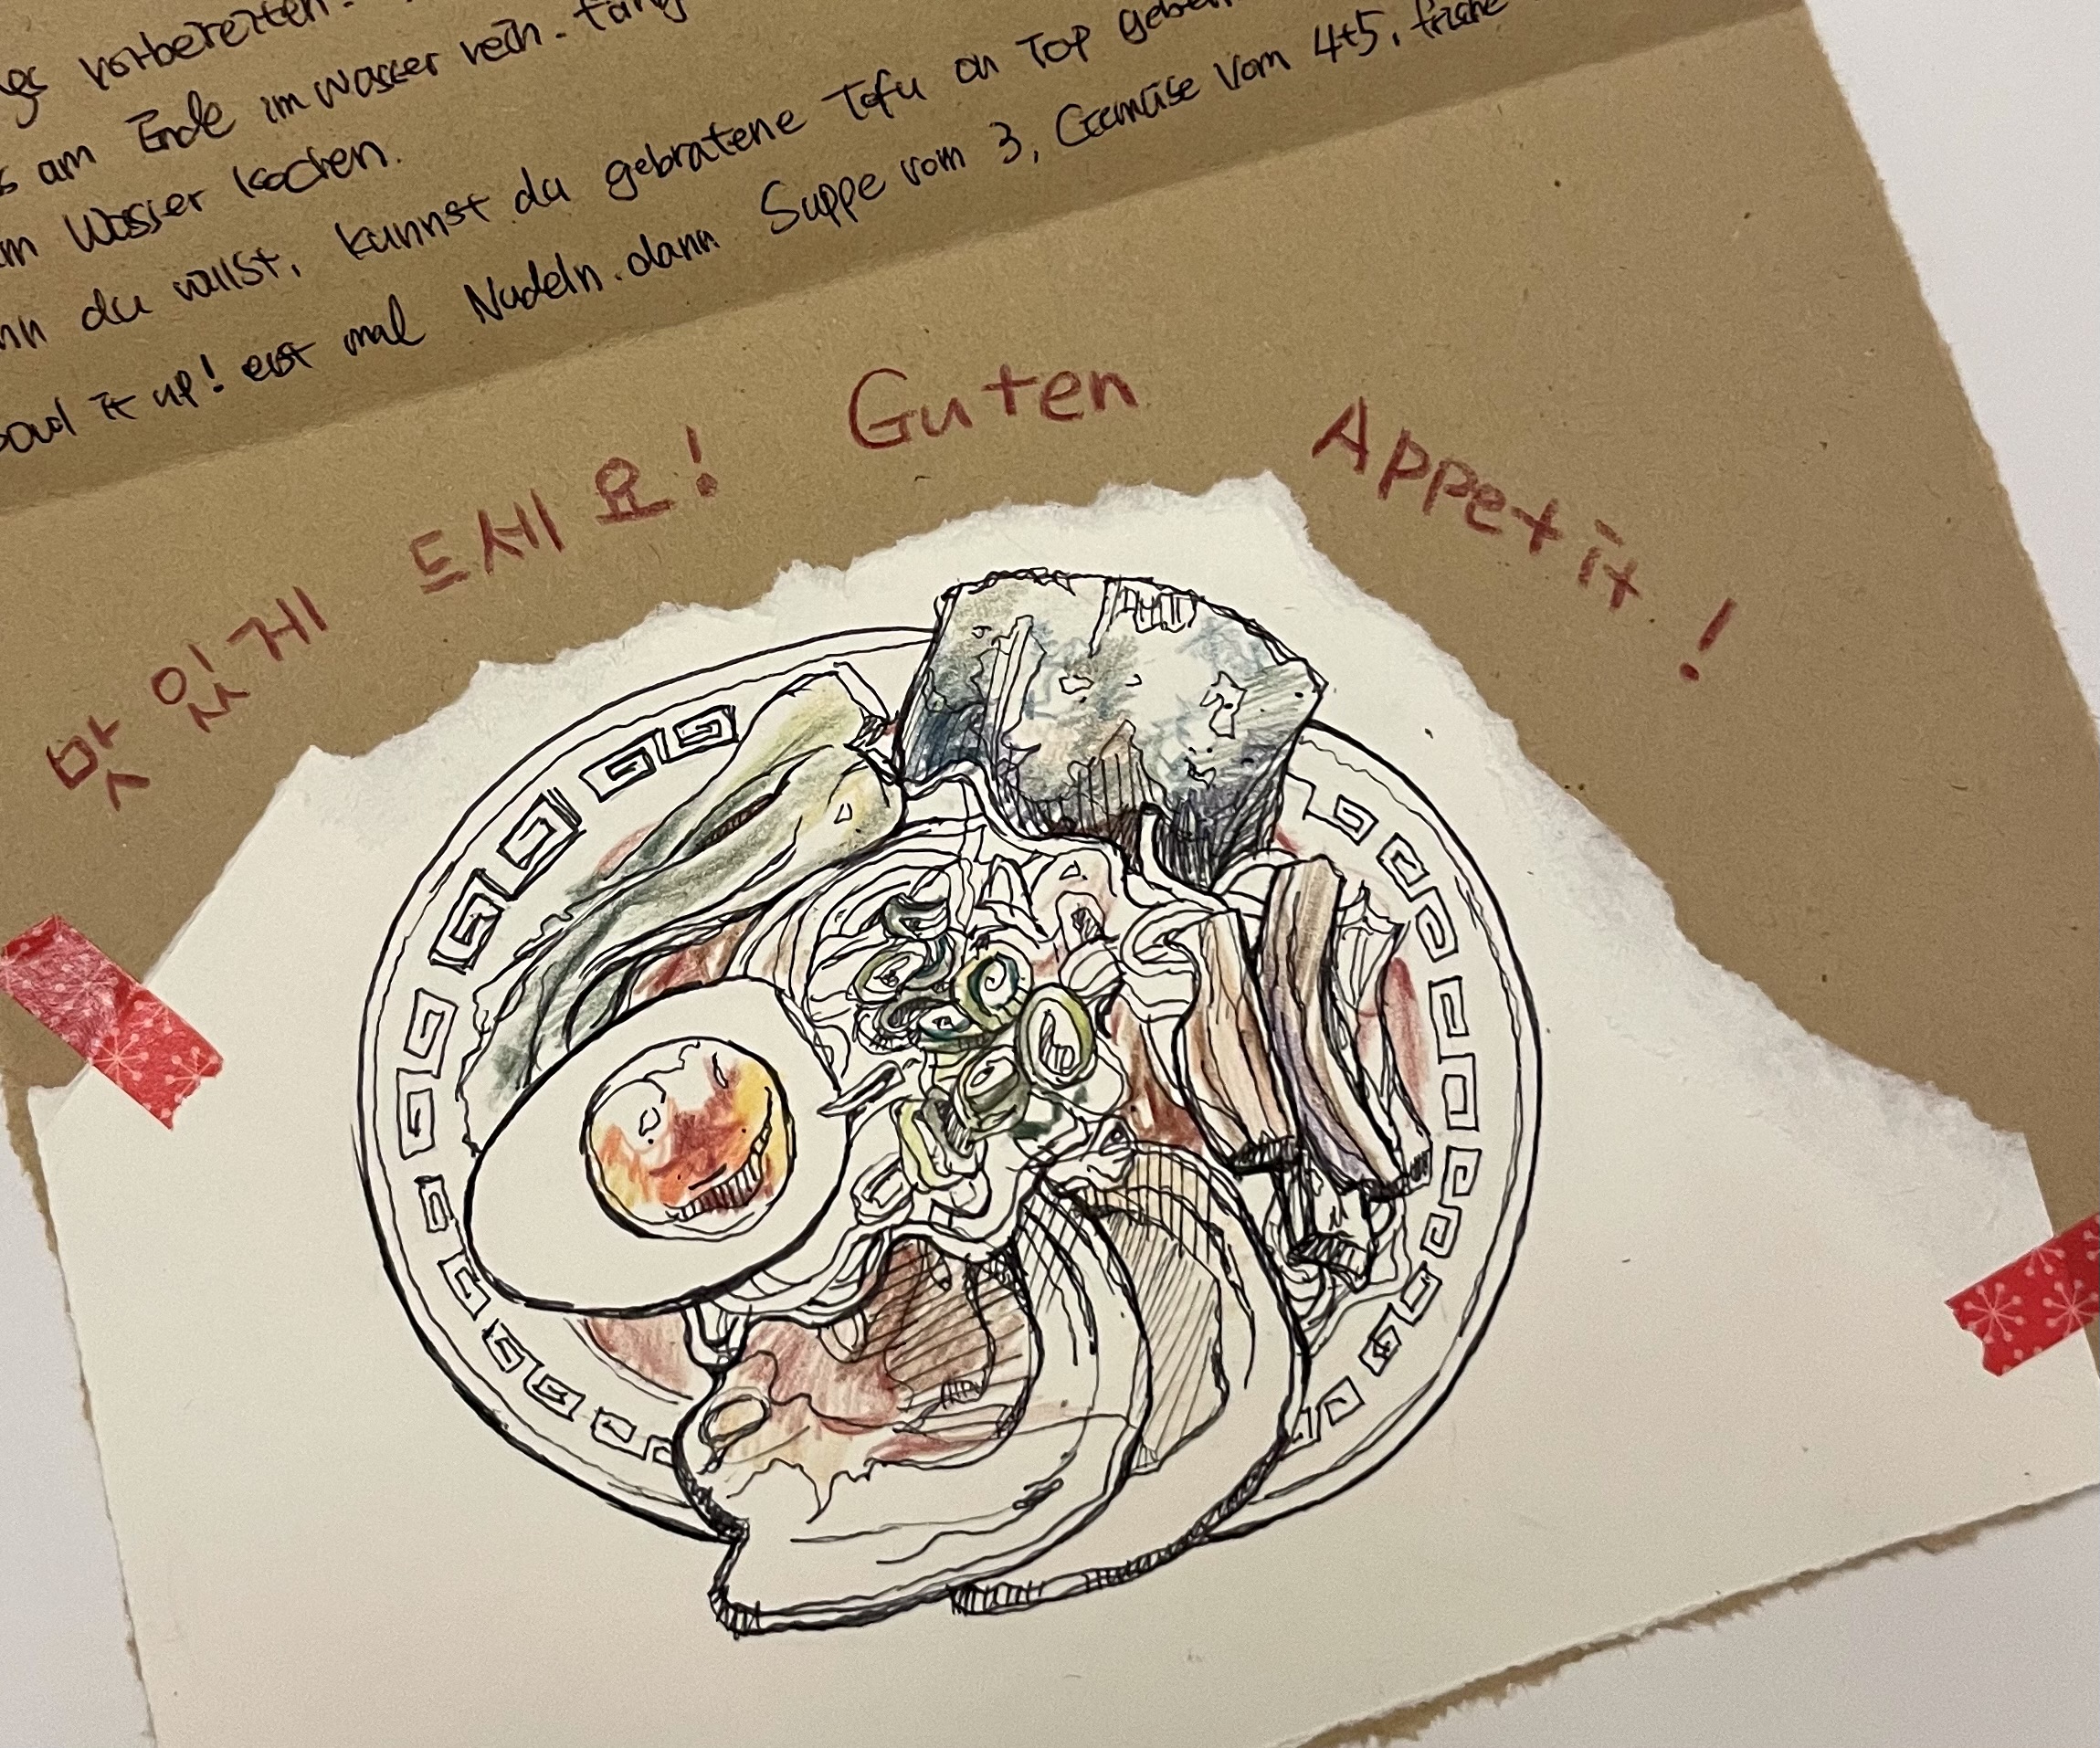 vorbereiten.
am Ende im Wasser
Wasser kochen.
du willst, kannst du gebratene Tofu on Top geben
it up! erst mal Nudeln. dann Suppe vom 3, Gemüse vom 4+5, frische
맛있게 드세요! Guten Appetit!